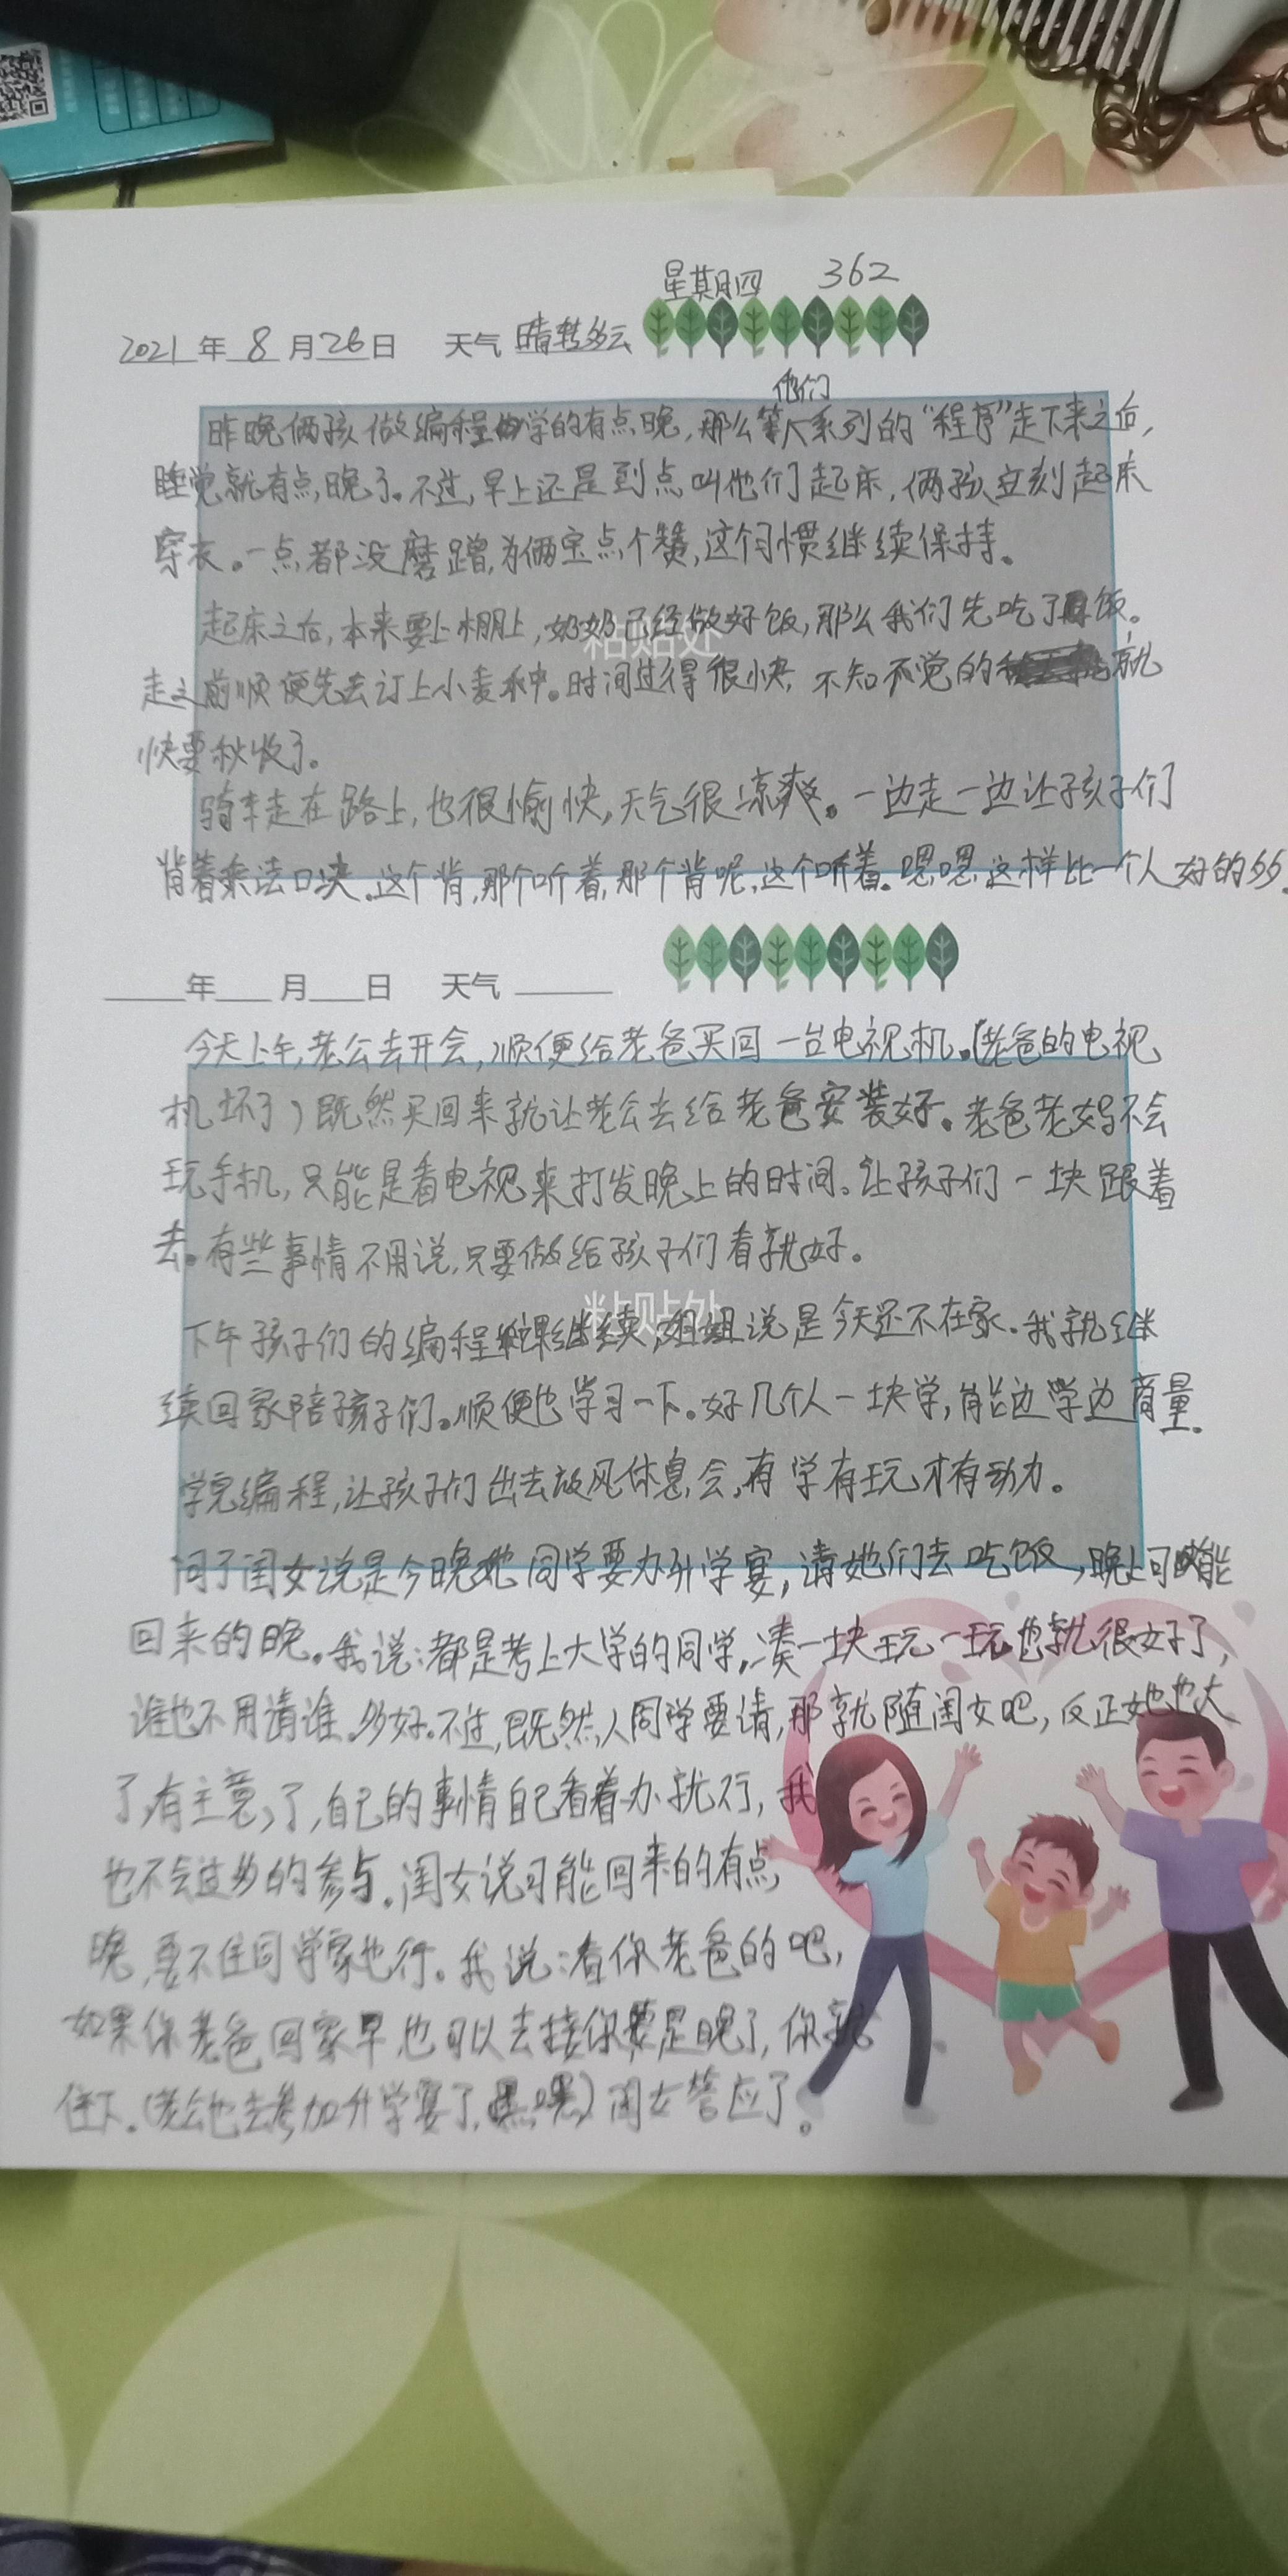 星期四 362
2021年8月26日 天气 晴转多云
他们
昨晚俩孩做编程学的有点晚,那么等 系列的“程序”走下来之后,
睡觉就有点晚了。不过,早上还是到点叫他们起床,俩孩立刻起床
穿衣。一点都没磨蹭,为俩宝点个赞,这个习惯继续保持。
起床之后,本来要上棚上,奶奶已经做好饭,那么我们先吃了饭。
粘贴处
走之前顺便先去订上小麦种。时间过得很快,不知不觉的就
快要秋收了。
骑车走在路上,也很愉快,天气很凉爽。一边走一边让孩子们
背着乘法口诀.这个背,那个听着,那个背呢,这个听着.嗯嗯,这样比一个人好的多.
年 月 日 天气
今天上午,老公去开会,顺便给老爸买回一台电视机。(老爸的电视
机坏了)既然买回来就让老公去给老爸安装好。老爸老妈不会
玩手机,只能是看电视来打发晚上的时间。让孩子们一块跟着
去。有些事情不用说,只要做给孩子们看就好。
粘贴处
下午孩子们的编程课继续,姐姐说是今天还不在家.我就继
续回家陪孩子们。顺便也学习一下。好几个人一块学,能边学边商量.
学完编程,让孩子们出去放风休息会,有学有玩才有动力。
问了闺女说是今晚她同学要办升学宴,请她们去吃饭,晚上可能
回来的晚。我说:都是考上大学的同学,凑一块玩一玩也就很好了,
谁也不用请谁.多好.不过,既然人同学要请,那就随闺女吧,反正她也大
了,有主意了,自己的事情自己看着办就行,我
也不会过多的参与.闺女说可能回来的有点
晚,要不住同学家也行。我说:看你老爸的吧,
如果你老爸回家早也可以去接你要是晚了,你就
住下.(老公也去参加升学宴了,嘿嘿)闺女答应了。